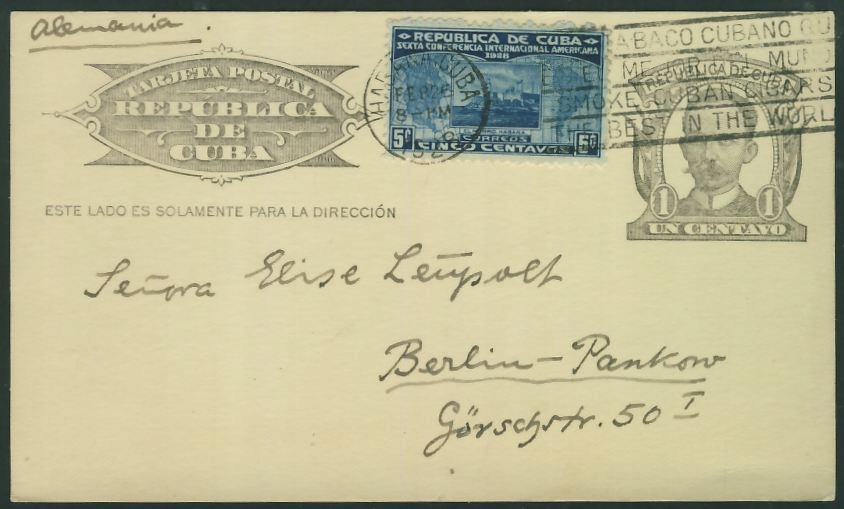 Alemania.
TARJETA POSTAL
REPÚBLICA
DE
CUBA
REPUBLICA DE CUBA
SEXTA CONFERENCIA INTERNACIONAL AMERICANA
1928
HABANA
CORREOS
5¢ 5¢
CINCO CENTAVOS
HABANA, CUBA
FEB 26
8 PM
TABACO CUBANO
MUNDO
SMOKE CUBAN CIGARS
THE BEST IN THE WORL
REPUBLICA DE CUBA
1 1
UN CENTAVO
ESTE LADO ES SOLAMENTE PARA LA DIRECCIÓN
Señora Elise Leupolt
Berlin-Pankow
Görschstr. 50 I